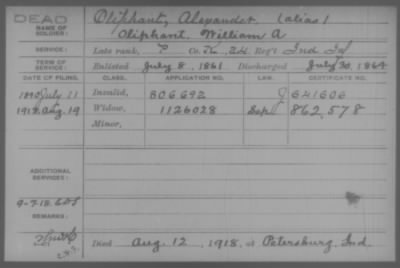 DEAD
NAME OF SOLDIER: Oliphant, Alexander. (alias)
Oliphant, William A
SERVICE: Late rank, P Co. K, 24 Reg't Ind Inf
TERM OF SERVICE: Enlisted July 8, 1861 Discharged July 30, 1864
DATE OF FILING. CLASS. APPLICATION NO. LAW. CERTIFICATE NO.
1890 July 11 Invalid, 806692 J 641606
1918 Aug. 19 Widow, 1126028 Sep. 862,578
Minor,
ADDITIONAL SERVICES:
REMARKS:
Died Aug. 12, 1918, at Petersburg, Ind.